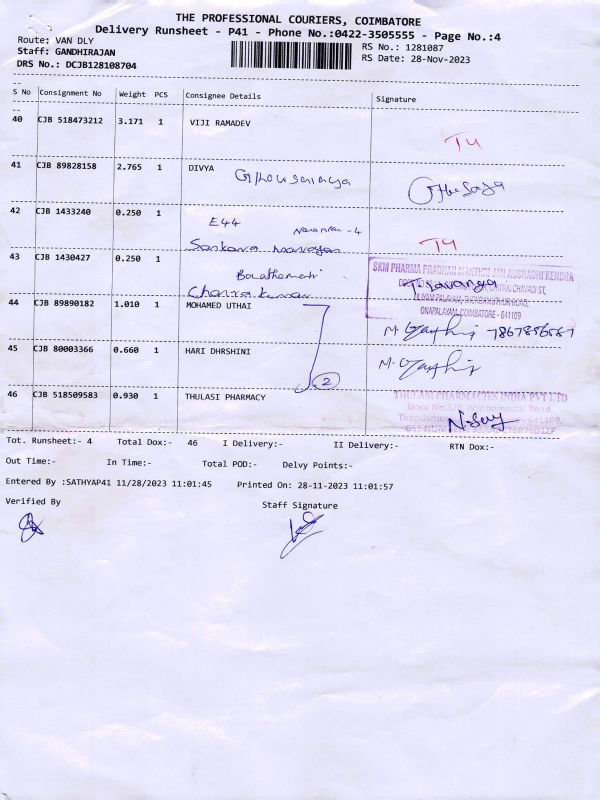 THE PROFESSIONAL COURIERS, COIMBATORE
Delivery Runsheet - P41 - Phone No.:0422-3505555 - Page No.:4
Route: VAN DLY
RS No.: 1281087
Staff: GANDHIRAJAN
RS Date: 28-Nov-2023
DRS No.: DCJB128108704
S No Consignment No Weight PCS Consignee Details Signature
40 CJB 518473212 3.171 1 VIJI RAMADEV
T4
41 CJB 89828158 2.765 1 DIVYA
42 CJB 1433240 0.250 1 E44
T4
Sankara narayan
43 CJB 1430427 0.250 1
SKM PHARMA PRADHAN MANTHRI JAN AUSHADHI KENDRA
ONAPALAYAM, COIMBATORE - 641109
44 CJB 89890182 1.010 1 MOHAMED UTHAI
7867856587
45 CJB 80003366 0.660 1 HARI DHRSHINI
2
46 CJB 518509583 0.930 1 THULASI PHARMACY
THULASI PHARMACIES INDIA PVT LTD
Tot. Runsheet:- 4 Total Dox:- 46 I Delivery:- II Delivery:- RTN Dox:-
Out Time:- In Time:- Total POD:- Delvy Points:-
Entered By :SATHYAP41 11/28/2023 11:01:45 Printed On: 28-11-2023 11:01:57
Verified By Staff Signature